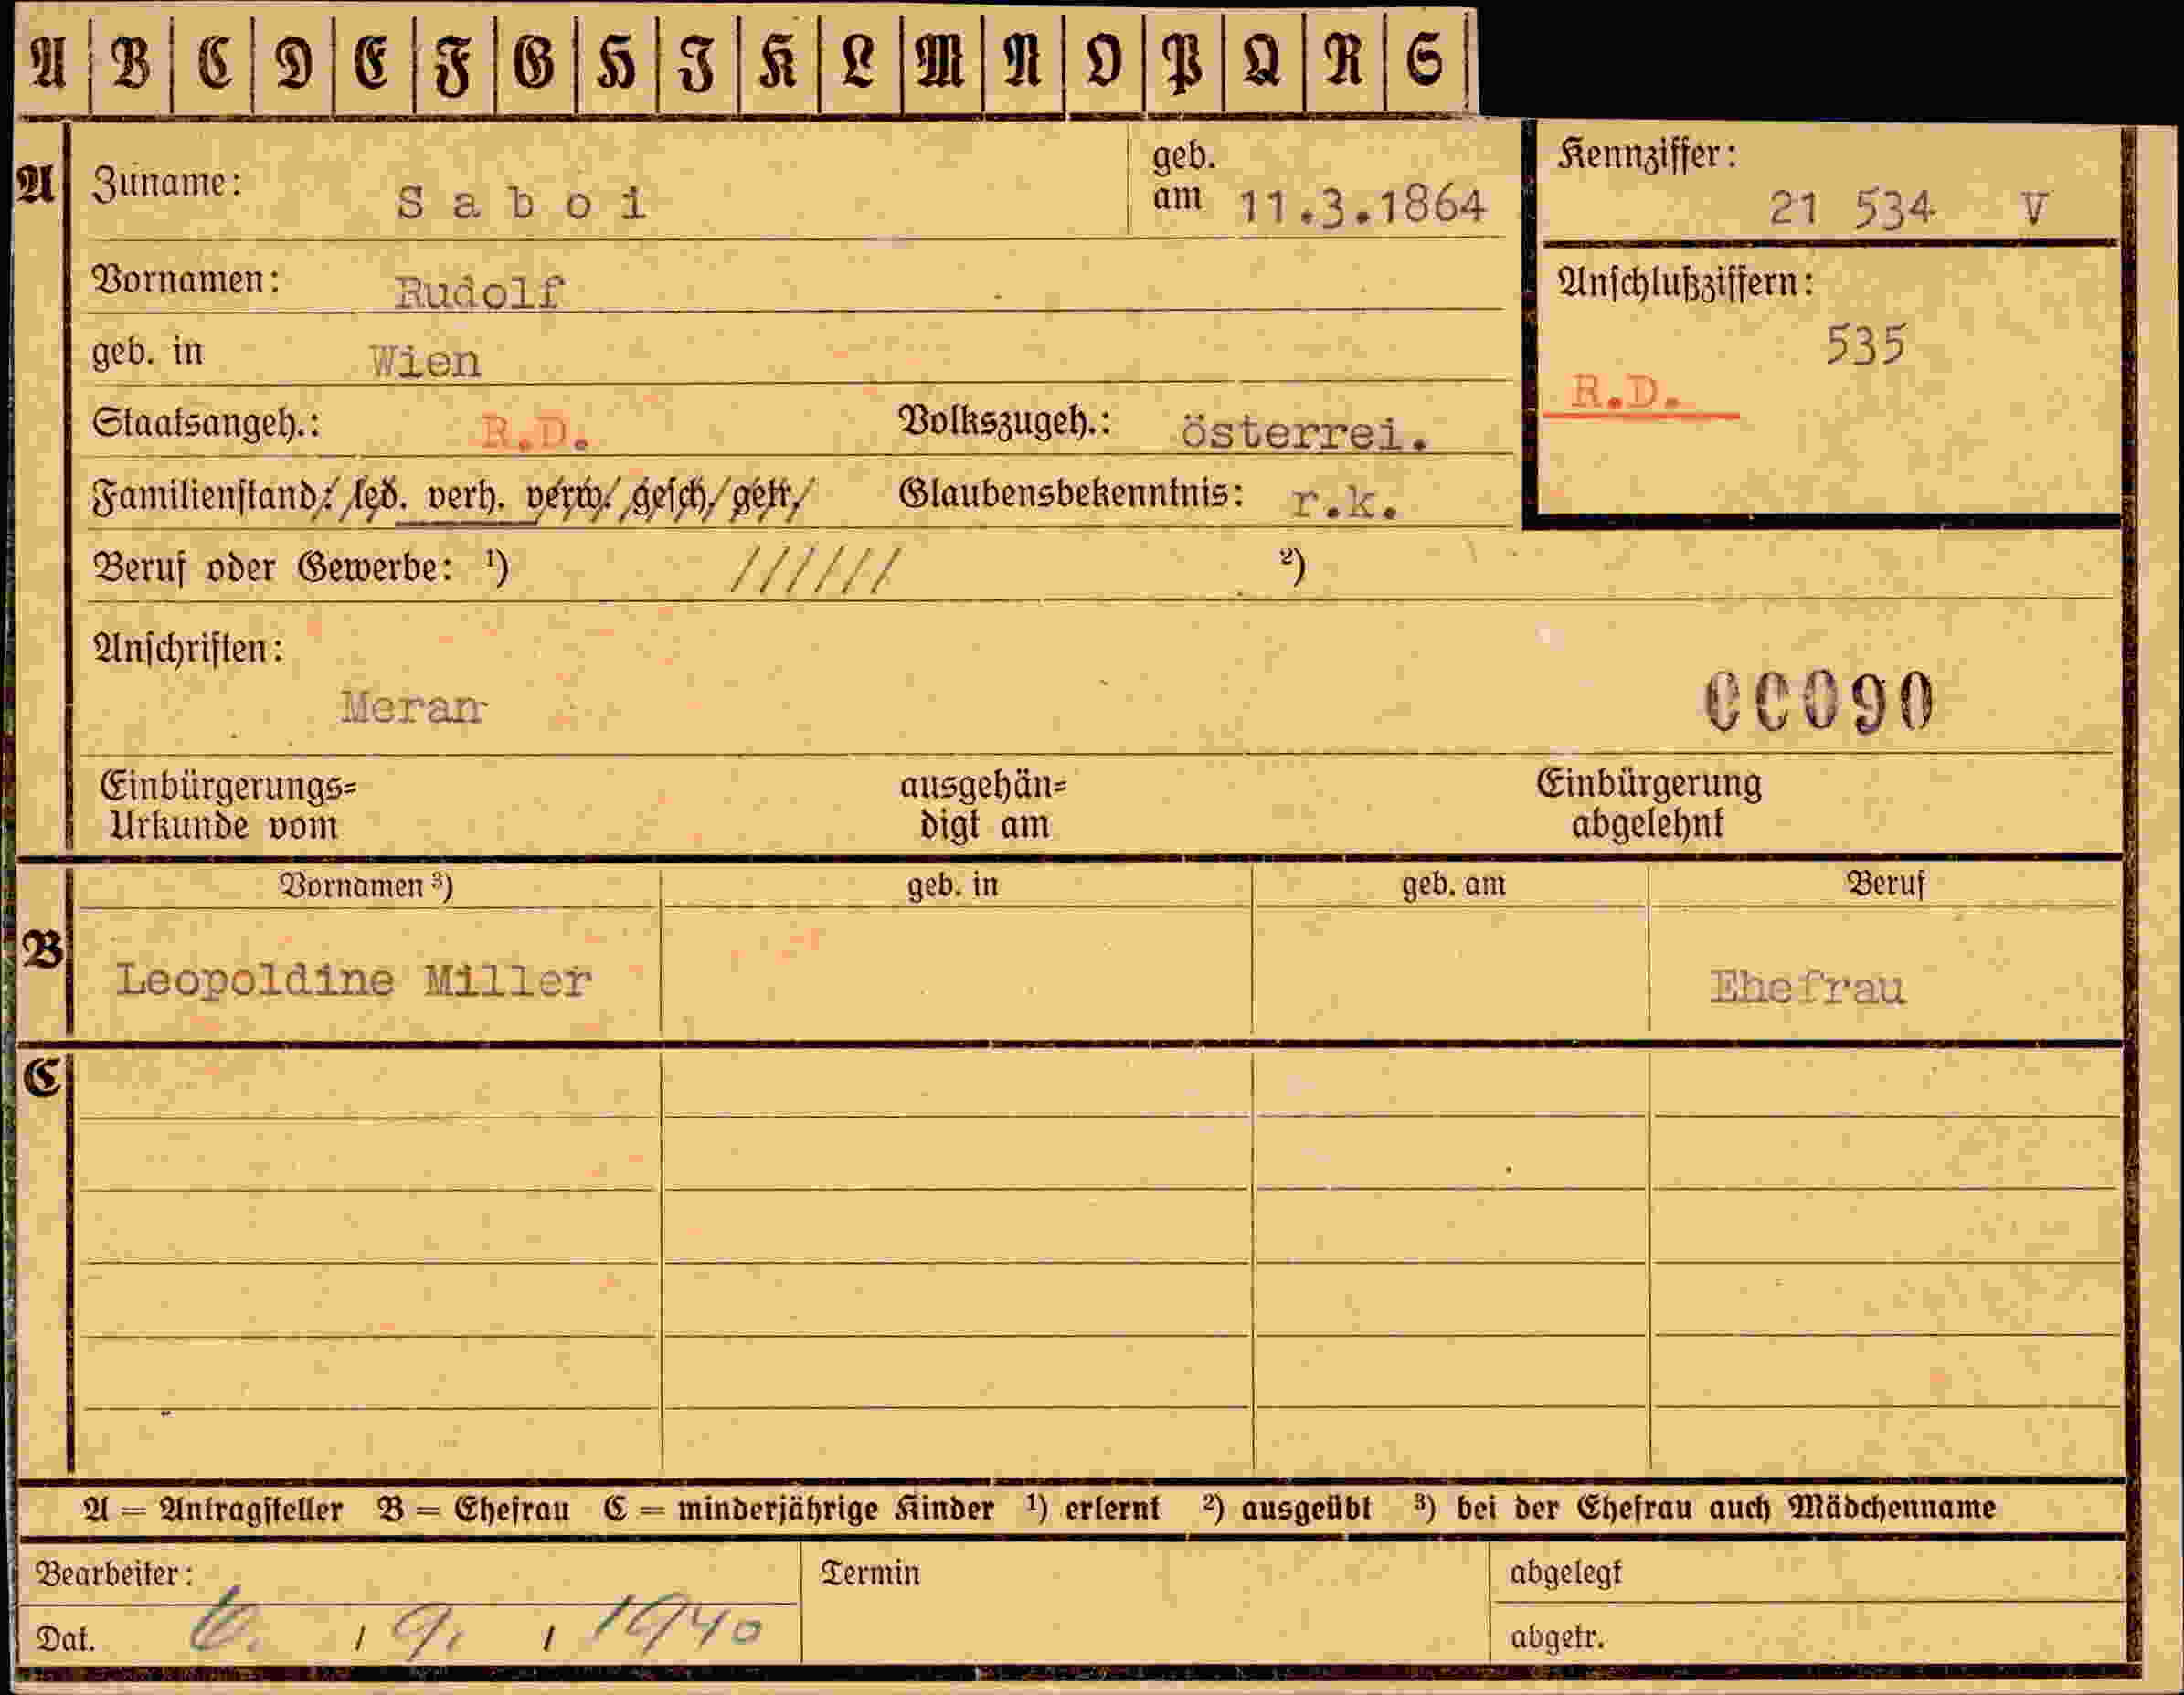 A B C D E F G H I K L M N O P Q R S
A Zuname: Saboi geb. am 11.3.1864 Kennziffer: 21 534 V
Vornamen: Rudolf Anschlußziffern:
535
geb. in Wien R.D.
Staatsangeh.: R.D. Volkszugeh.: österrei.
Familienstand: led. verh. verw. gesch/ getr/ Glaubensbekenntnis: r.k.
Beruf oder Gewerbe: ¹) ////// ²)
Anschriften:
Meran 00090
Einbürgerungs= ausgehän= Einbürgerung
Urkunde vom digt am abgelehnt
Vornamen ³) geb. in geb. am Beruf
B Leopoldine Miller Ehefrau
C
A = Antragsteller B = Ehefrau C = minderjährige Kinder ¹) erlernt ²) ausgeübt ³) bei der Ehefrau auch Mädchenname
Bearbeiter: Termin abgelegt
Dat. / 9. / 1940 abgetr.